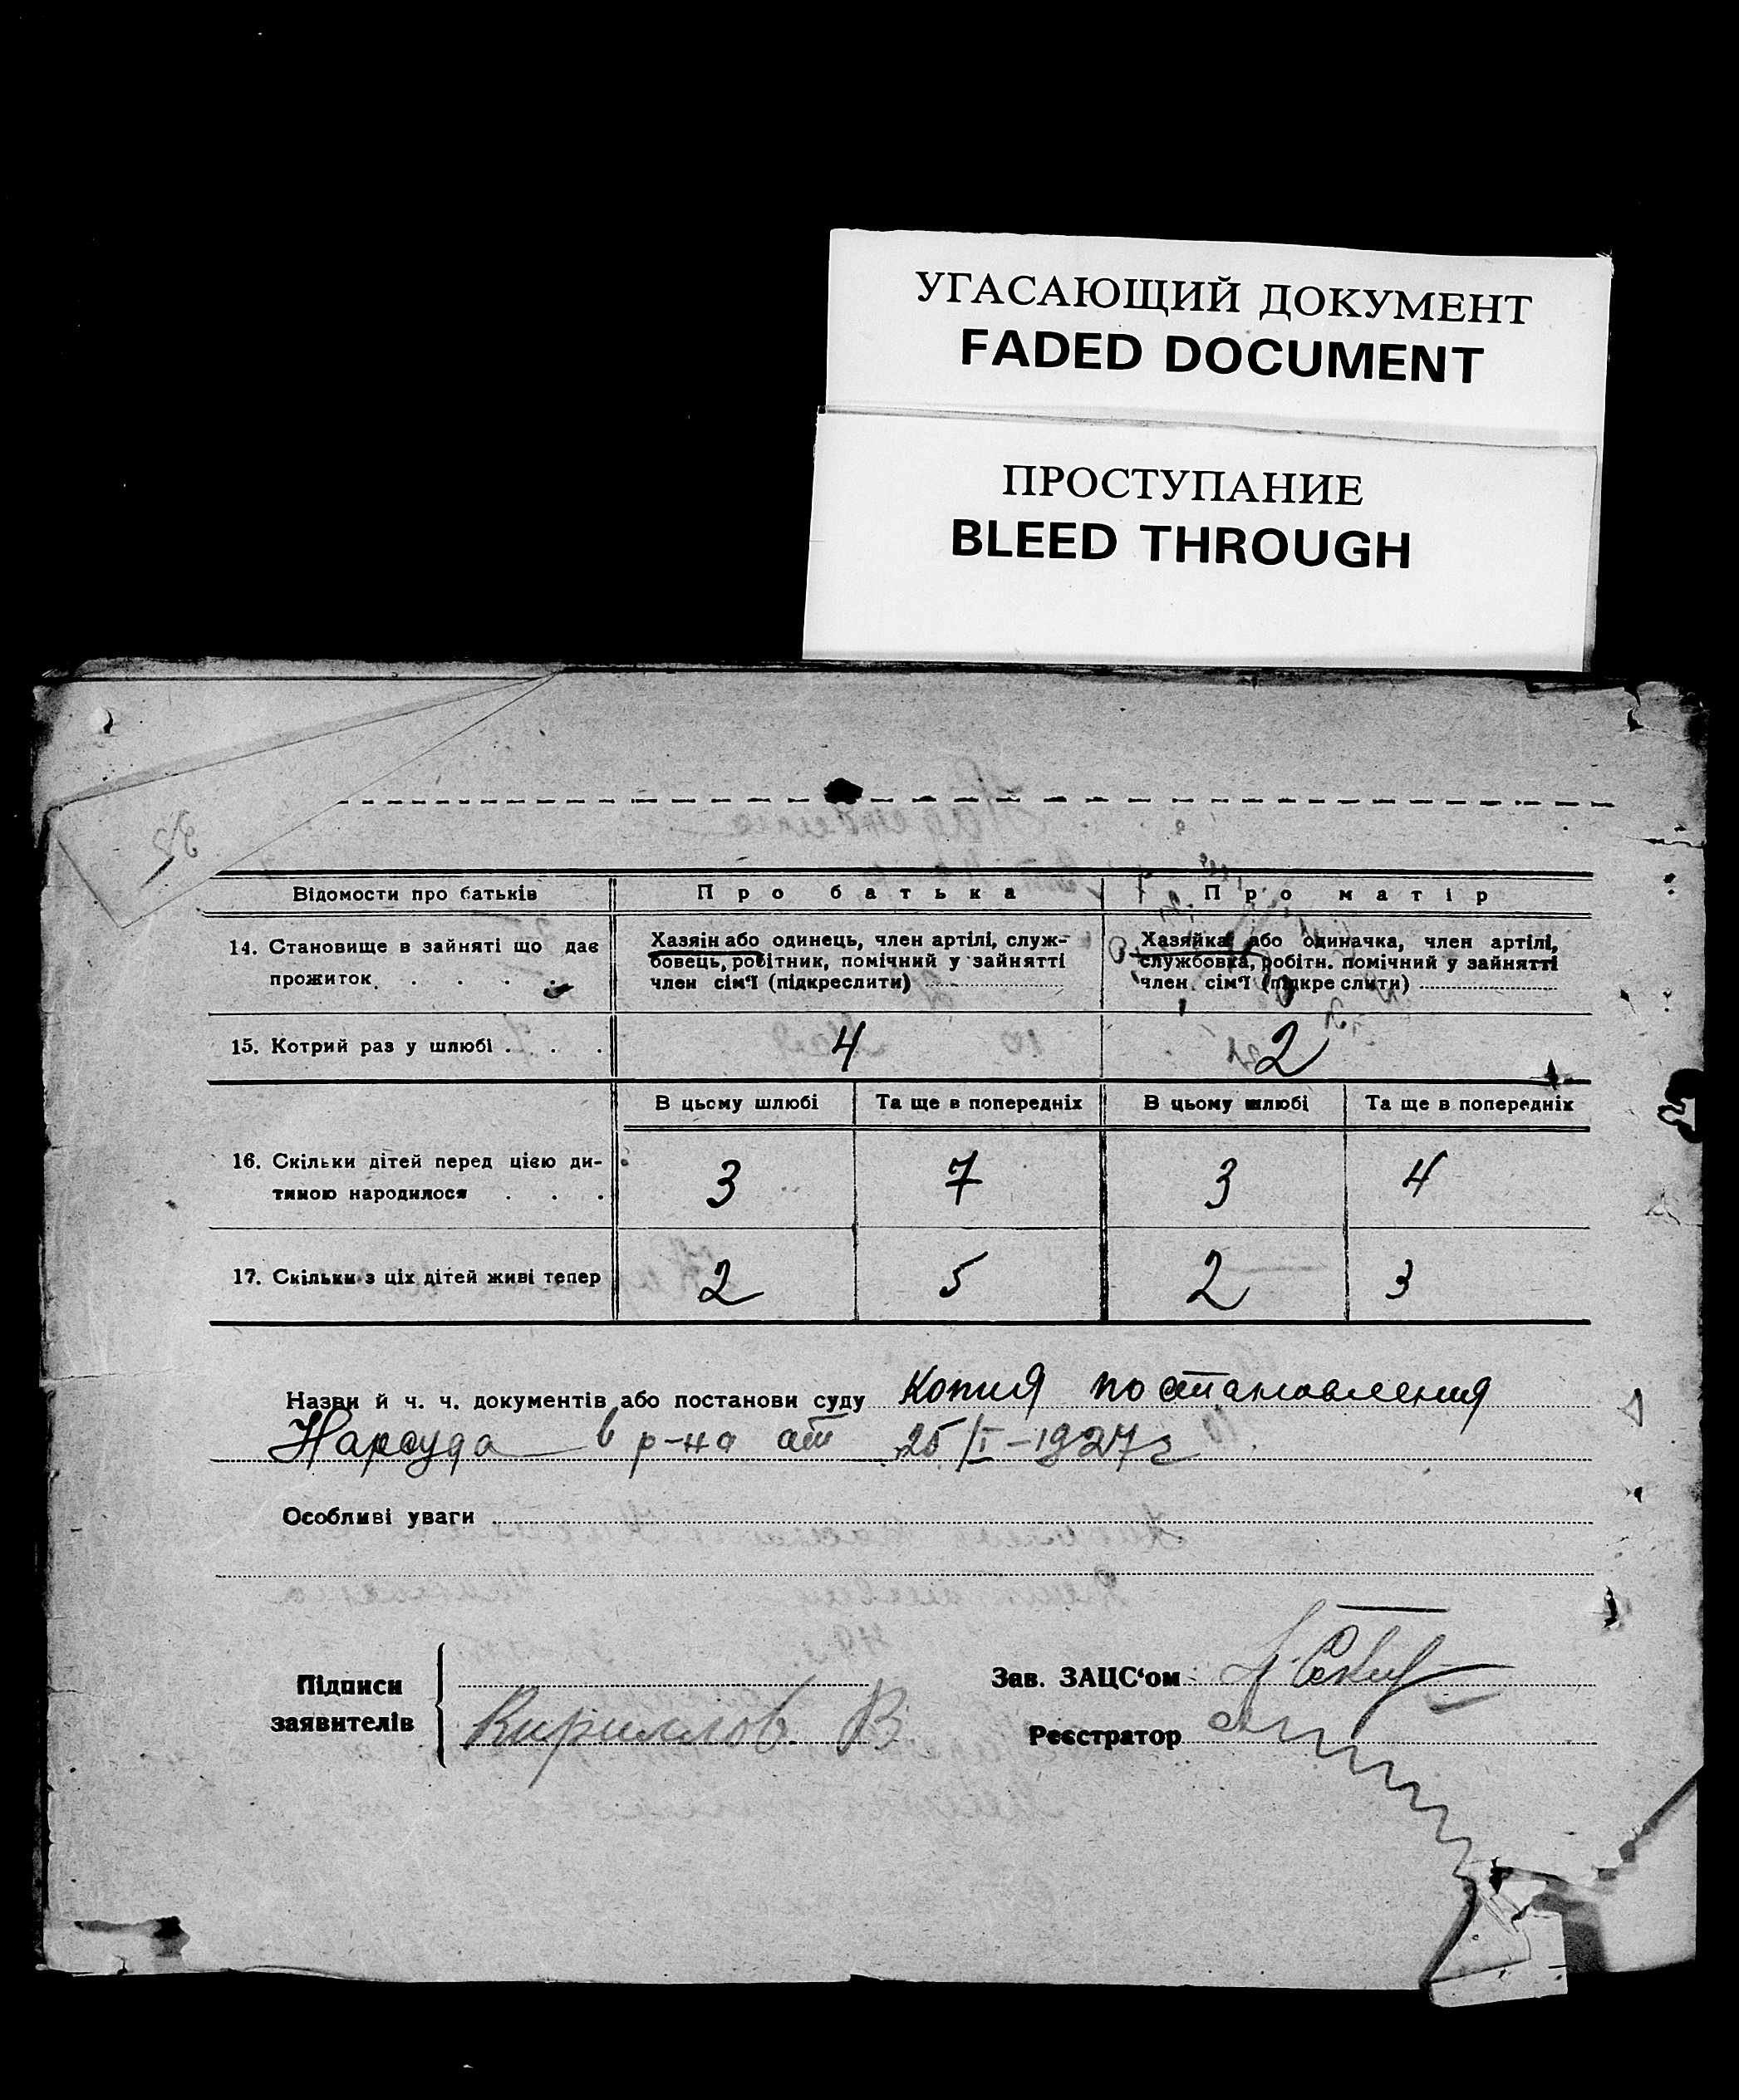 УГАСАЮЩИЙ ДОКУМЕНТ
FADED DOCUMENT
ПРОСТУПАНИЕ
BLEED THROUGH
Відомости про батьків Про батька Про матір
14. Становище в зайняті що дає
прожиток . . . .
Хазяін або одинець, член артілі, служ-
бовець, робітник, помічний у зайнятті
член сім'ї (підкреслити)
Хазяйка або одиначка, член артілі,
службовка, робітн. помічний у зайнятті
член сім'ї (підкре слити)
15. Котрий раз у шлюбі . . . 4 2
В цьому шлюбі Та ще в попередніх В цьому шлюбі Та ще в попередніх
16. Скільки дітей перед цією ди-
тиною народилося . . . 3 7 3 4
17. Скільки з ціх дітей живі тепер 2 5 2 3
Назви й ч. ч. документів або постанови суду Копия постановления
Нарсуда в р-на от 25/I-1927г
Особливі уваги
Підписи
заявителів
Кириллов В
Зав. ЗАЦС‘ом
Реєстратор